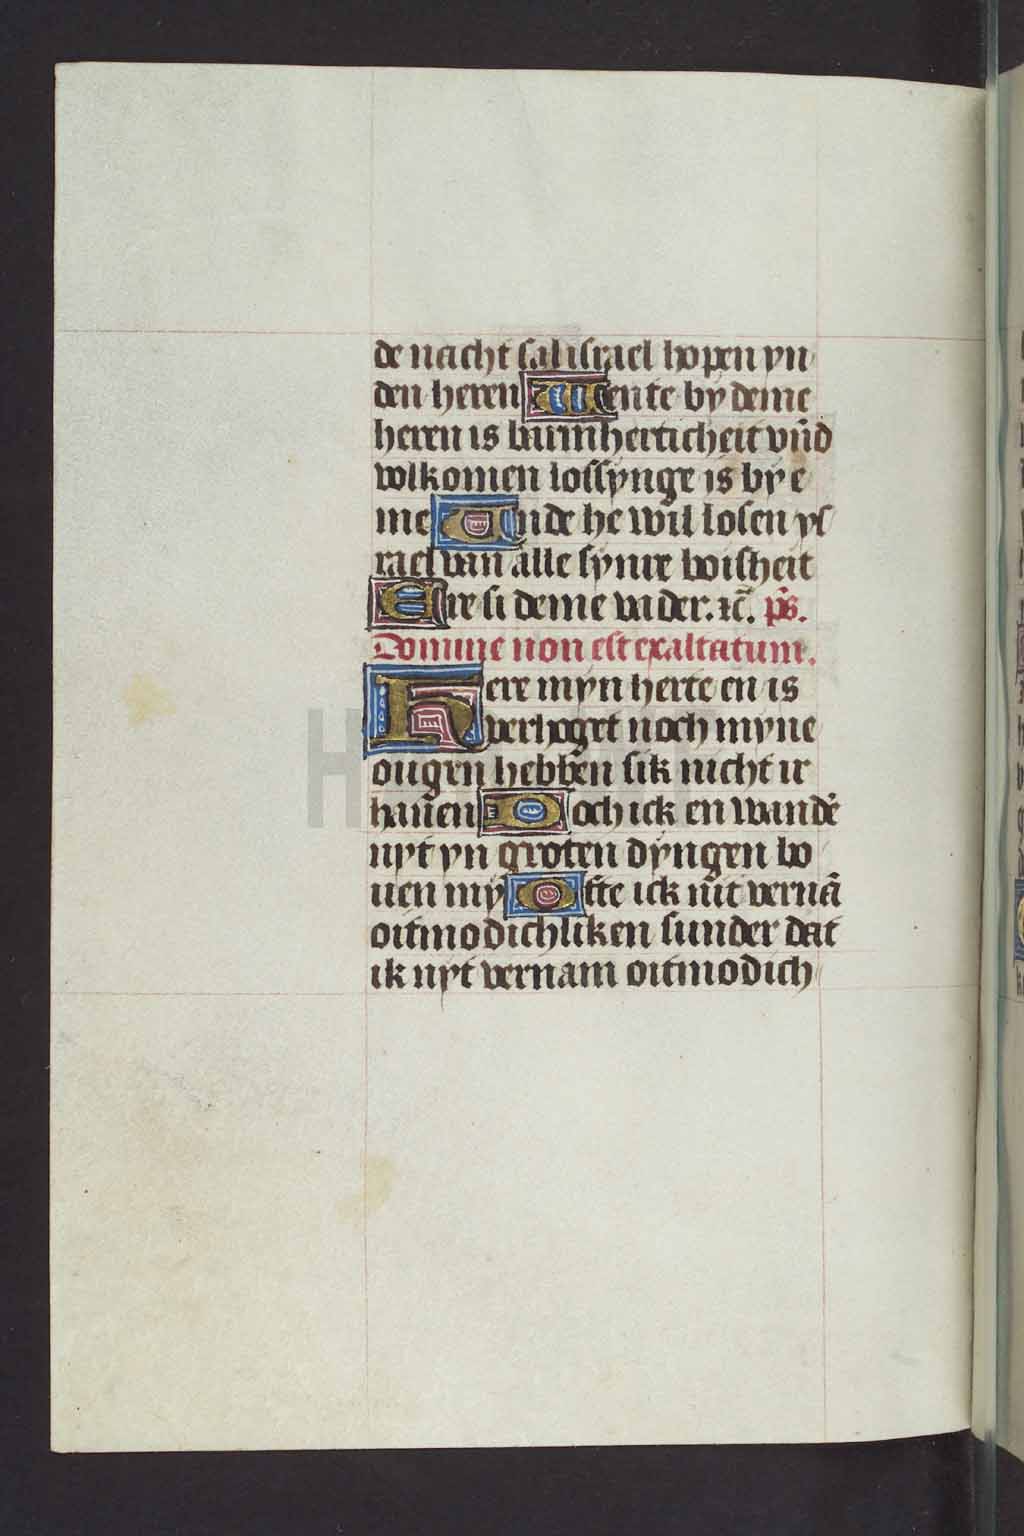 de nacht sal israel hopen yn
den heren Wente by deme
heren is barmherticheit vn̄d
volkomen lossynge is by e
me Unde he wil losen ys
rael van alle synre boisheit
Ere si deme vader. ⁊c̄. ps̄.
Domine non est exaltatum.
Here myn herte en is
verhoget noch myne
ougen hebben sik nicht ir
hauen Noch ick en wandē
nyt yn groten dyngen bo
uen my Ofte ick nit vernā
oitmodichliken sunder dat
ik nyt vernam oitmodich